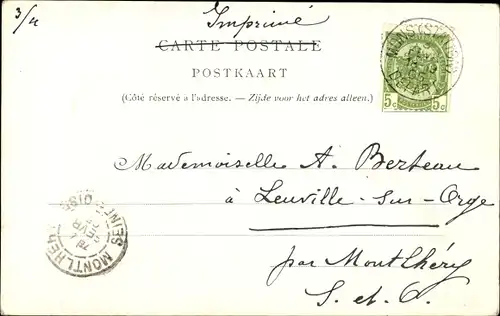 3/4
Imprimé
CARTE POSTALE
POSTKAART
(Côté réservé à l'adresse. — Zijde voor het adres alleen.)
5c 5c
Mademoiselle A. Berteau
à Leuville-sur-Orge
par Montlhéry
S. et O.
MONTLHERY